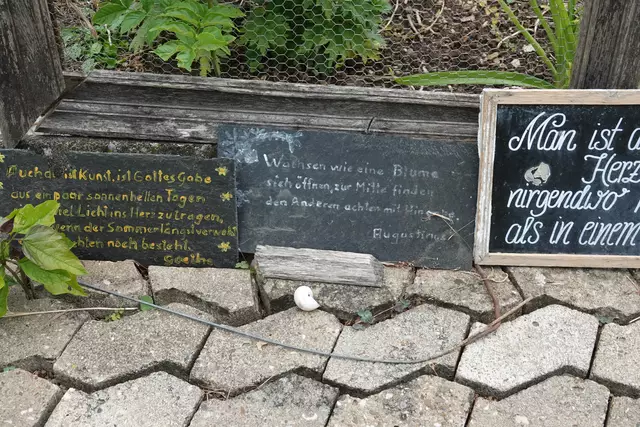 Auch das ist Kunst, ist Gottes Gabe
aus ein paar sonnenhellen Tagen
Licht ins Herz zu tragen,
wenn der Sommer längst verweht
noch besteht.
Goethe
Wachsen wie eine Blume
sich öffnen, zur Mitte finden
den Anderen achten mit
Augustinus
Man ist
Herz
nirgendwo
als in einem